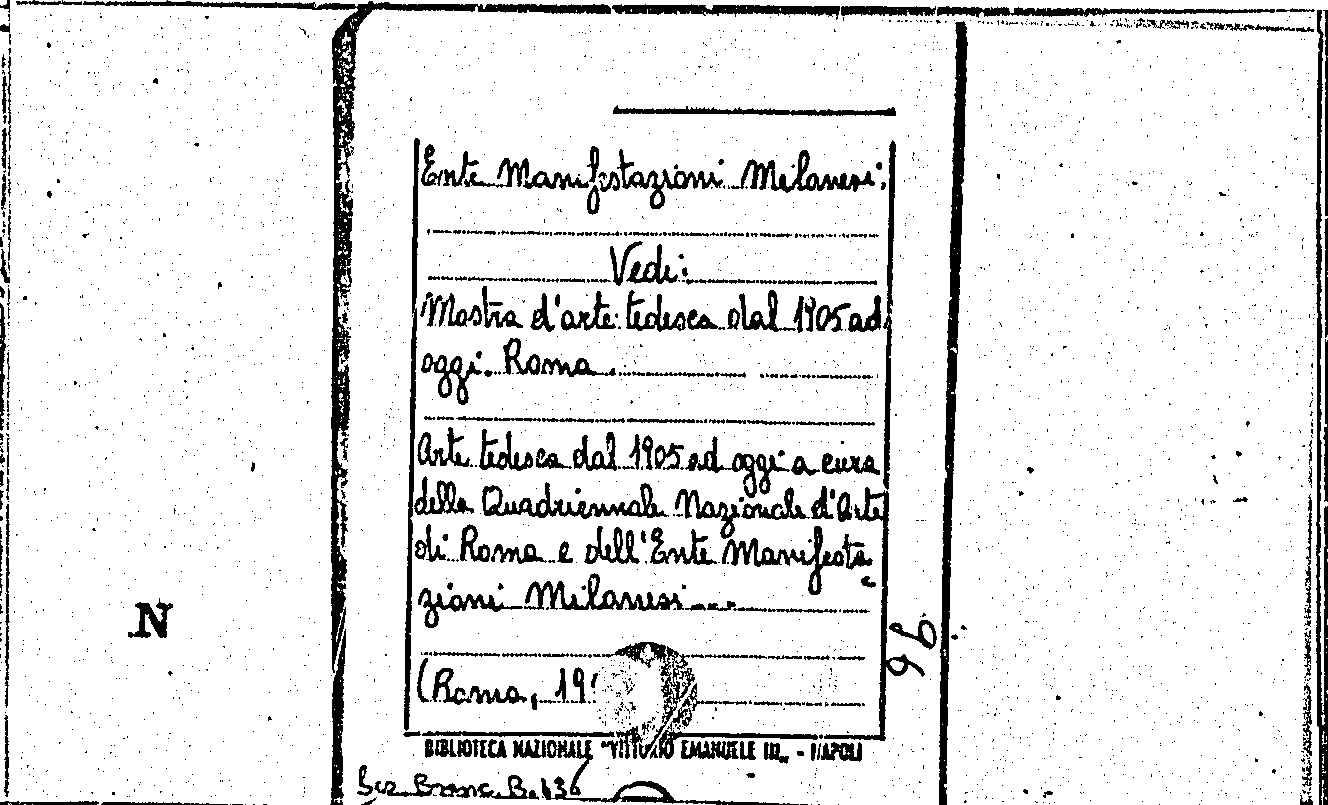 Ente Manifestazioni Milanesi.
Vedi:
Mostra d'arte tedesca dal 1905 ad
oggi. Roma.
Arte tedesca dal 1905 ad oggi a cura
della Quadriennale Nazionale d'Arte
di Roma e dell'Ente Manifesta-
zioni Milanesi...
(Roma, 19
BIBLIOTECA NAZIONALE "VITTORIO EMANUELE III" - NAPOLI
N